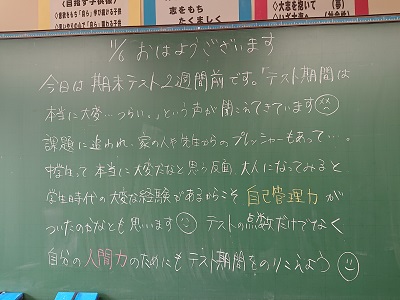 (目指す子供像)
志をもち
たくましく
◇大志を抱いて (夢)
11/6 おはようございます
今日は期末テスト2週間前です。「テスト期間は
本当に大変…つらい。」という声が聞こえてきています
課題に追われ、家の人や先生からのプレッシャーもあって…。
中学生って本当に大変だなと思う反面 大人になってみると
学生時代の大変な経験であるからこそ 自己管理力が
ついたのかなとも思います テストの点数だけでなく
自分の人間力のためにも テスト期間をのりこえよう